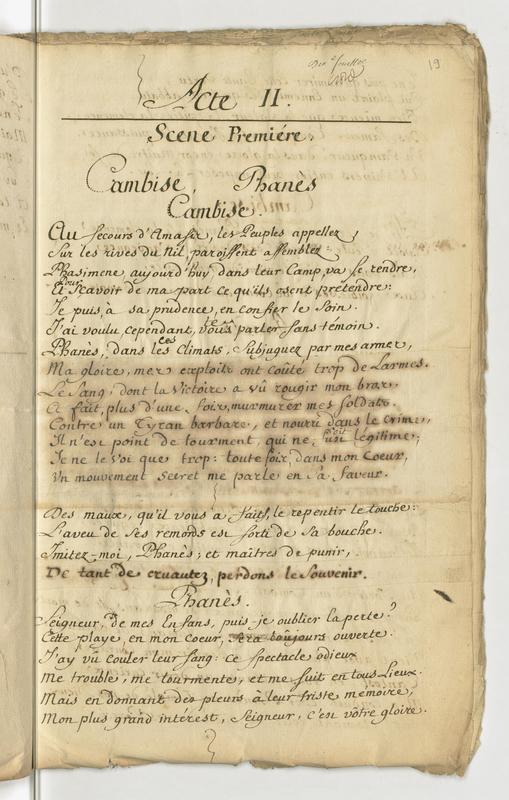 19
Acte II.
Scene Premiére.
Cambise, Phanès
Cambise.
Au secours d'Amasis, les Peuples appellez,
Sur les rives du Nil paroissent assemblez:
Phasimene aujourd'huy dans leur Camp va se rendre,
Pour scavoir de ma part ce qu'ils osent prétendre:
Je puis à sa prudence, en confier le Soin.
J'ai voulu cependant, vous parler sans témoin.
Phanès, dans ces Climats, Subjuguez par mes armes,
Ma gloire, mes exploits ont coûté trop de Larmes.
Le Sang, dont la Victoire a vû rougir mon bras,
A fait, plus d'une fois, murmurer mes Soldats.
Contre un Tyran barbare, et nourri dans le Crime,
Il n'est point de tourment, qui ne soit légitime;
Je ne le voi que trop: toutefois, dans mon Coeur,
Un mouvement Secret me parle en sa faveur.
Des maux, qu'il vous a faits, le repentir le touche:
L'aveu de Ses remords est sorti de Sa bouche.
Imitez-moi, Phanès; et maîtres de punir,
De tant de cruautez, perdons le Souvenir.
Phanès.
Seigneur, de mes Enfans, puis je oublier la perte?
Cette playe, en mon Coeur, Sera toûjours ouverte.
J'ay vû couler leur Sang: ce Spectacle odieux
Me trouble, me tourmente, et me suit en tous Lieux.
Mais en donnant des pleurs à leur triste mémoire,
Mon plus grand intérest, Seigneur, c'est vôtre gloire.